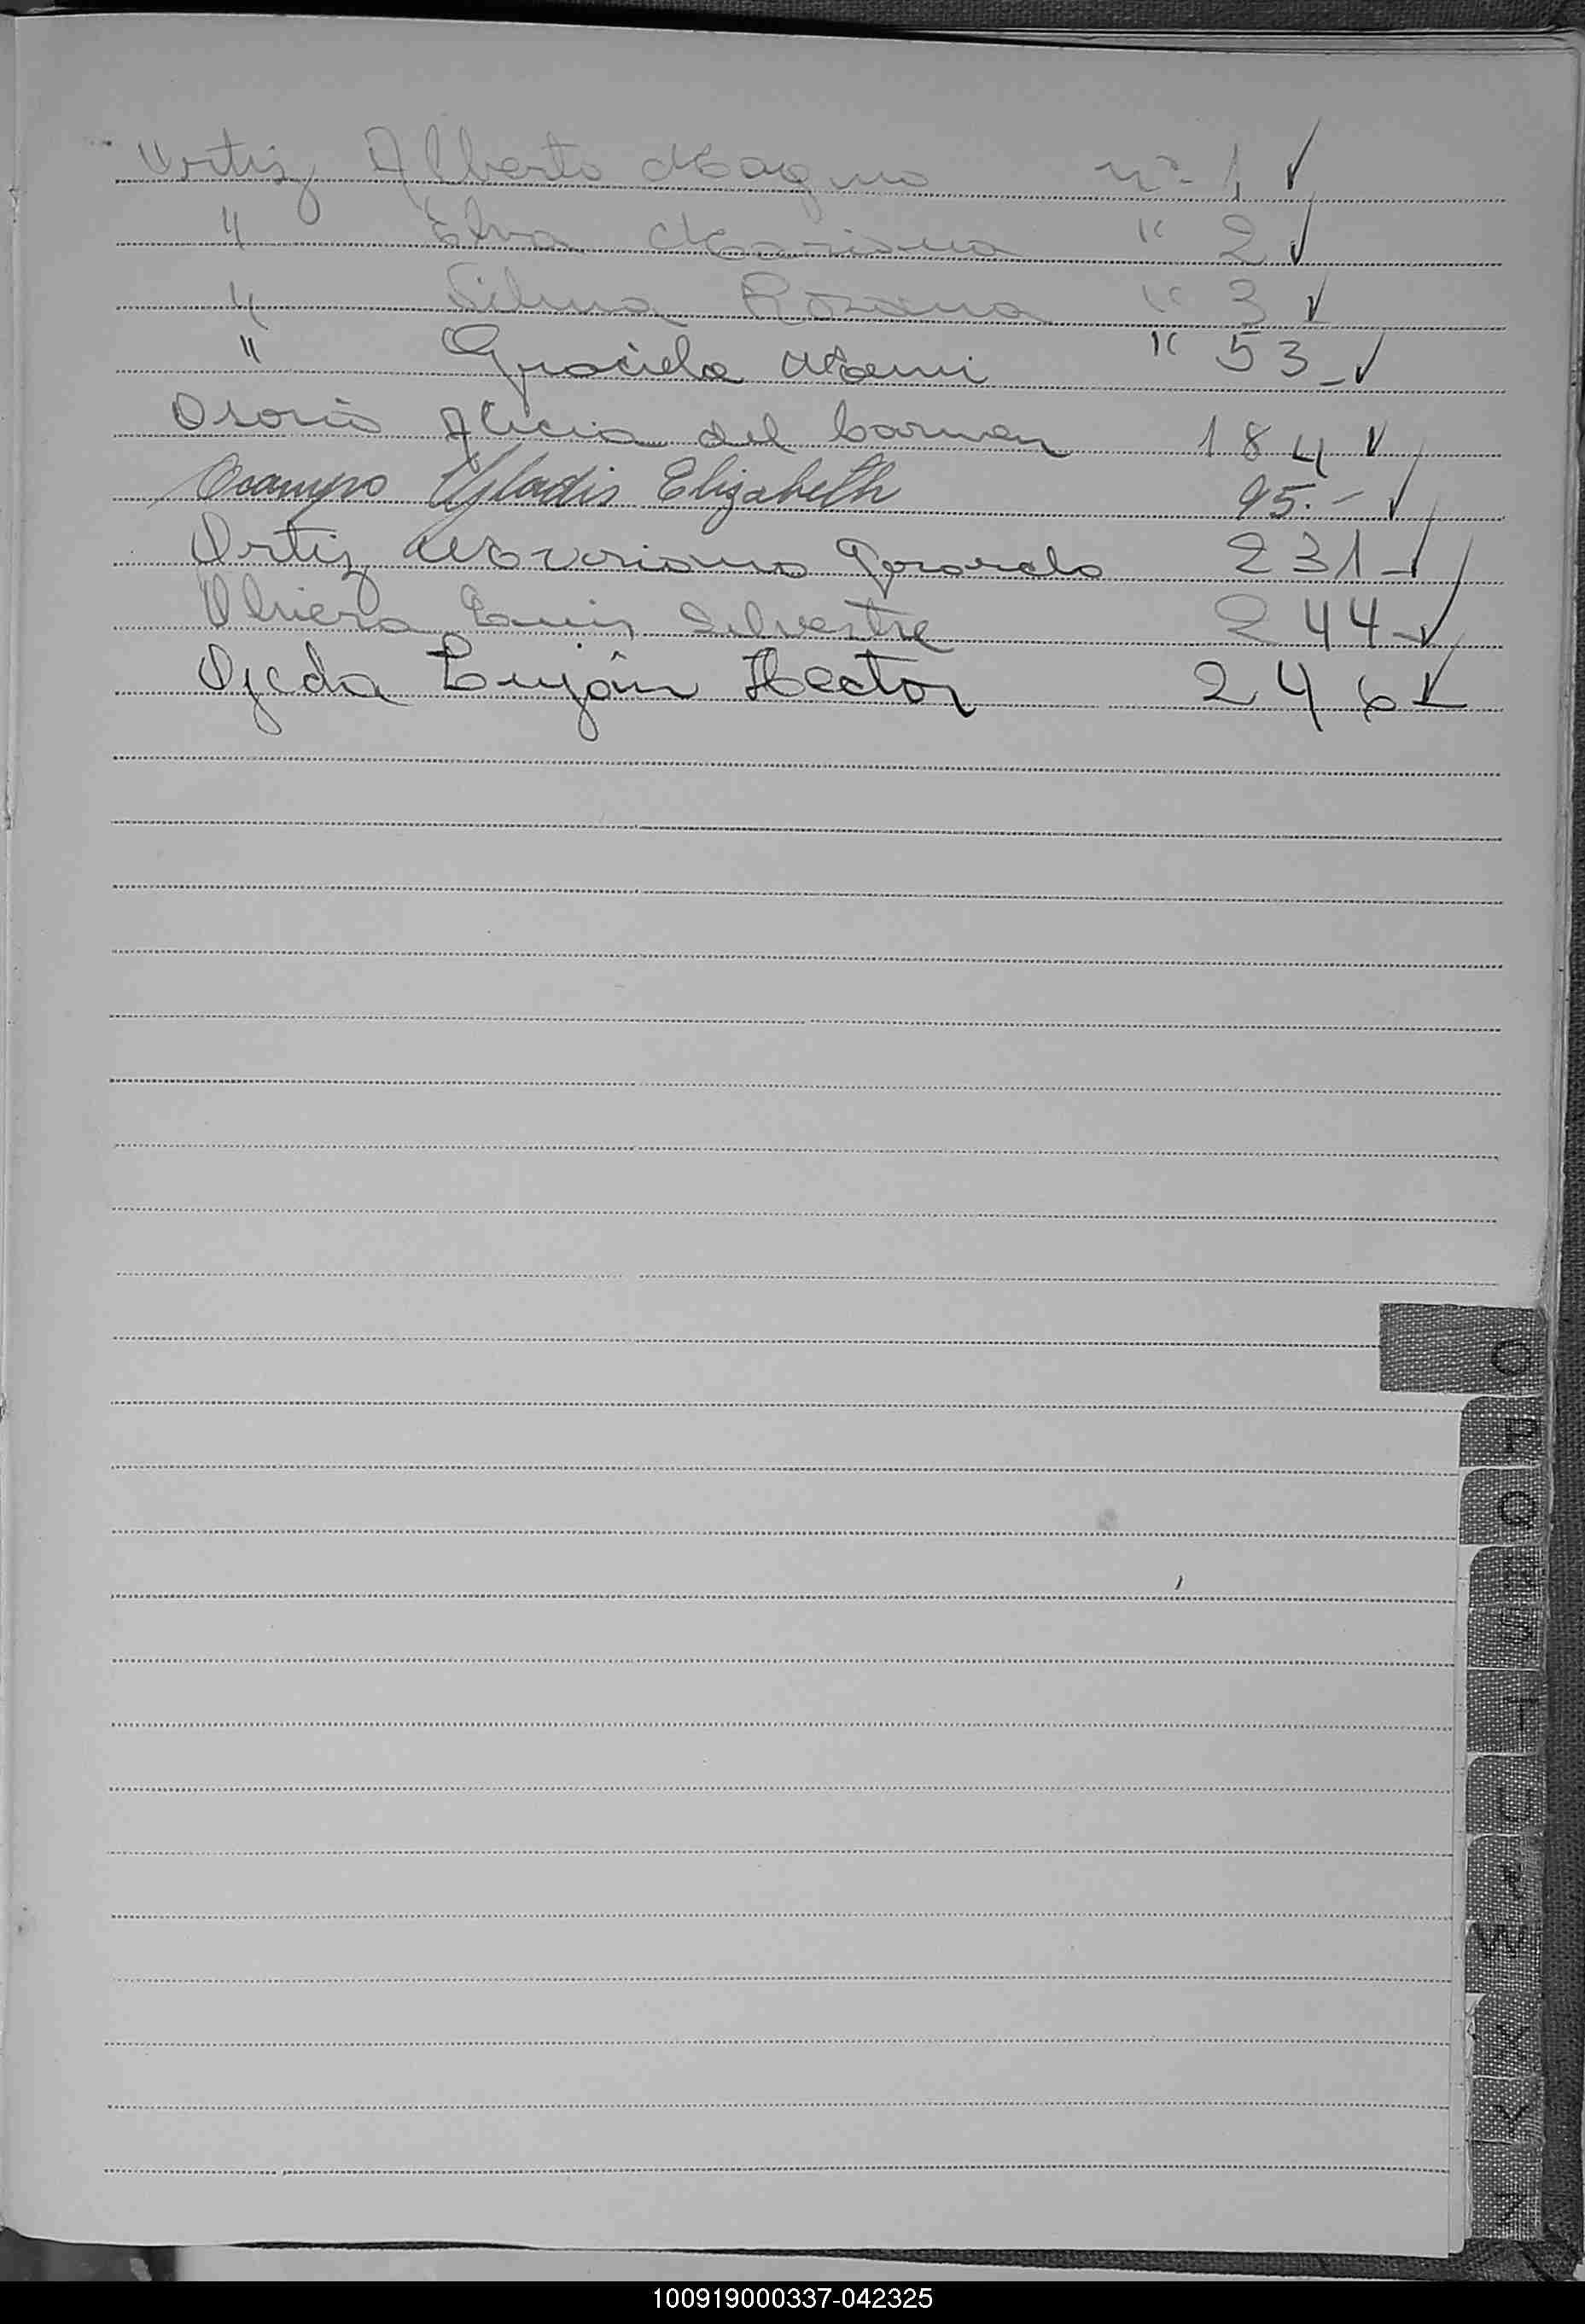 Ortiz Alberto Magno nº 1 ✓
" Elva Mariana " 2 ✓
" Silvia Rosana " 3 ✓
" Graciela Noemi " 53 ✓
Osorio Alicia del Carmen 184 ✓
Ocampo Gladis Elizabeth 95.- ✓
Ortiz Mariano Gerardo 231 ✓
Olviera Luis Silvestre 244 ✓
Ojeda Luján Hector 246 ✓
O
P
Q
R
S
T
U
V
W
X
Y
Z
100919000337-042325